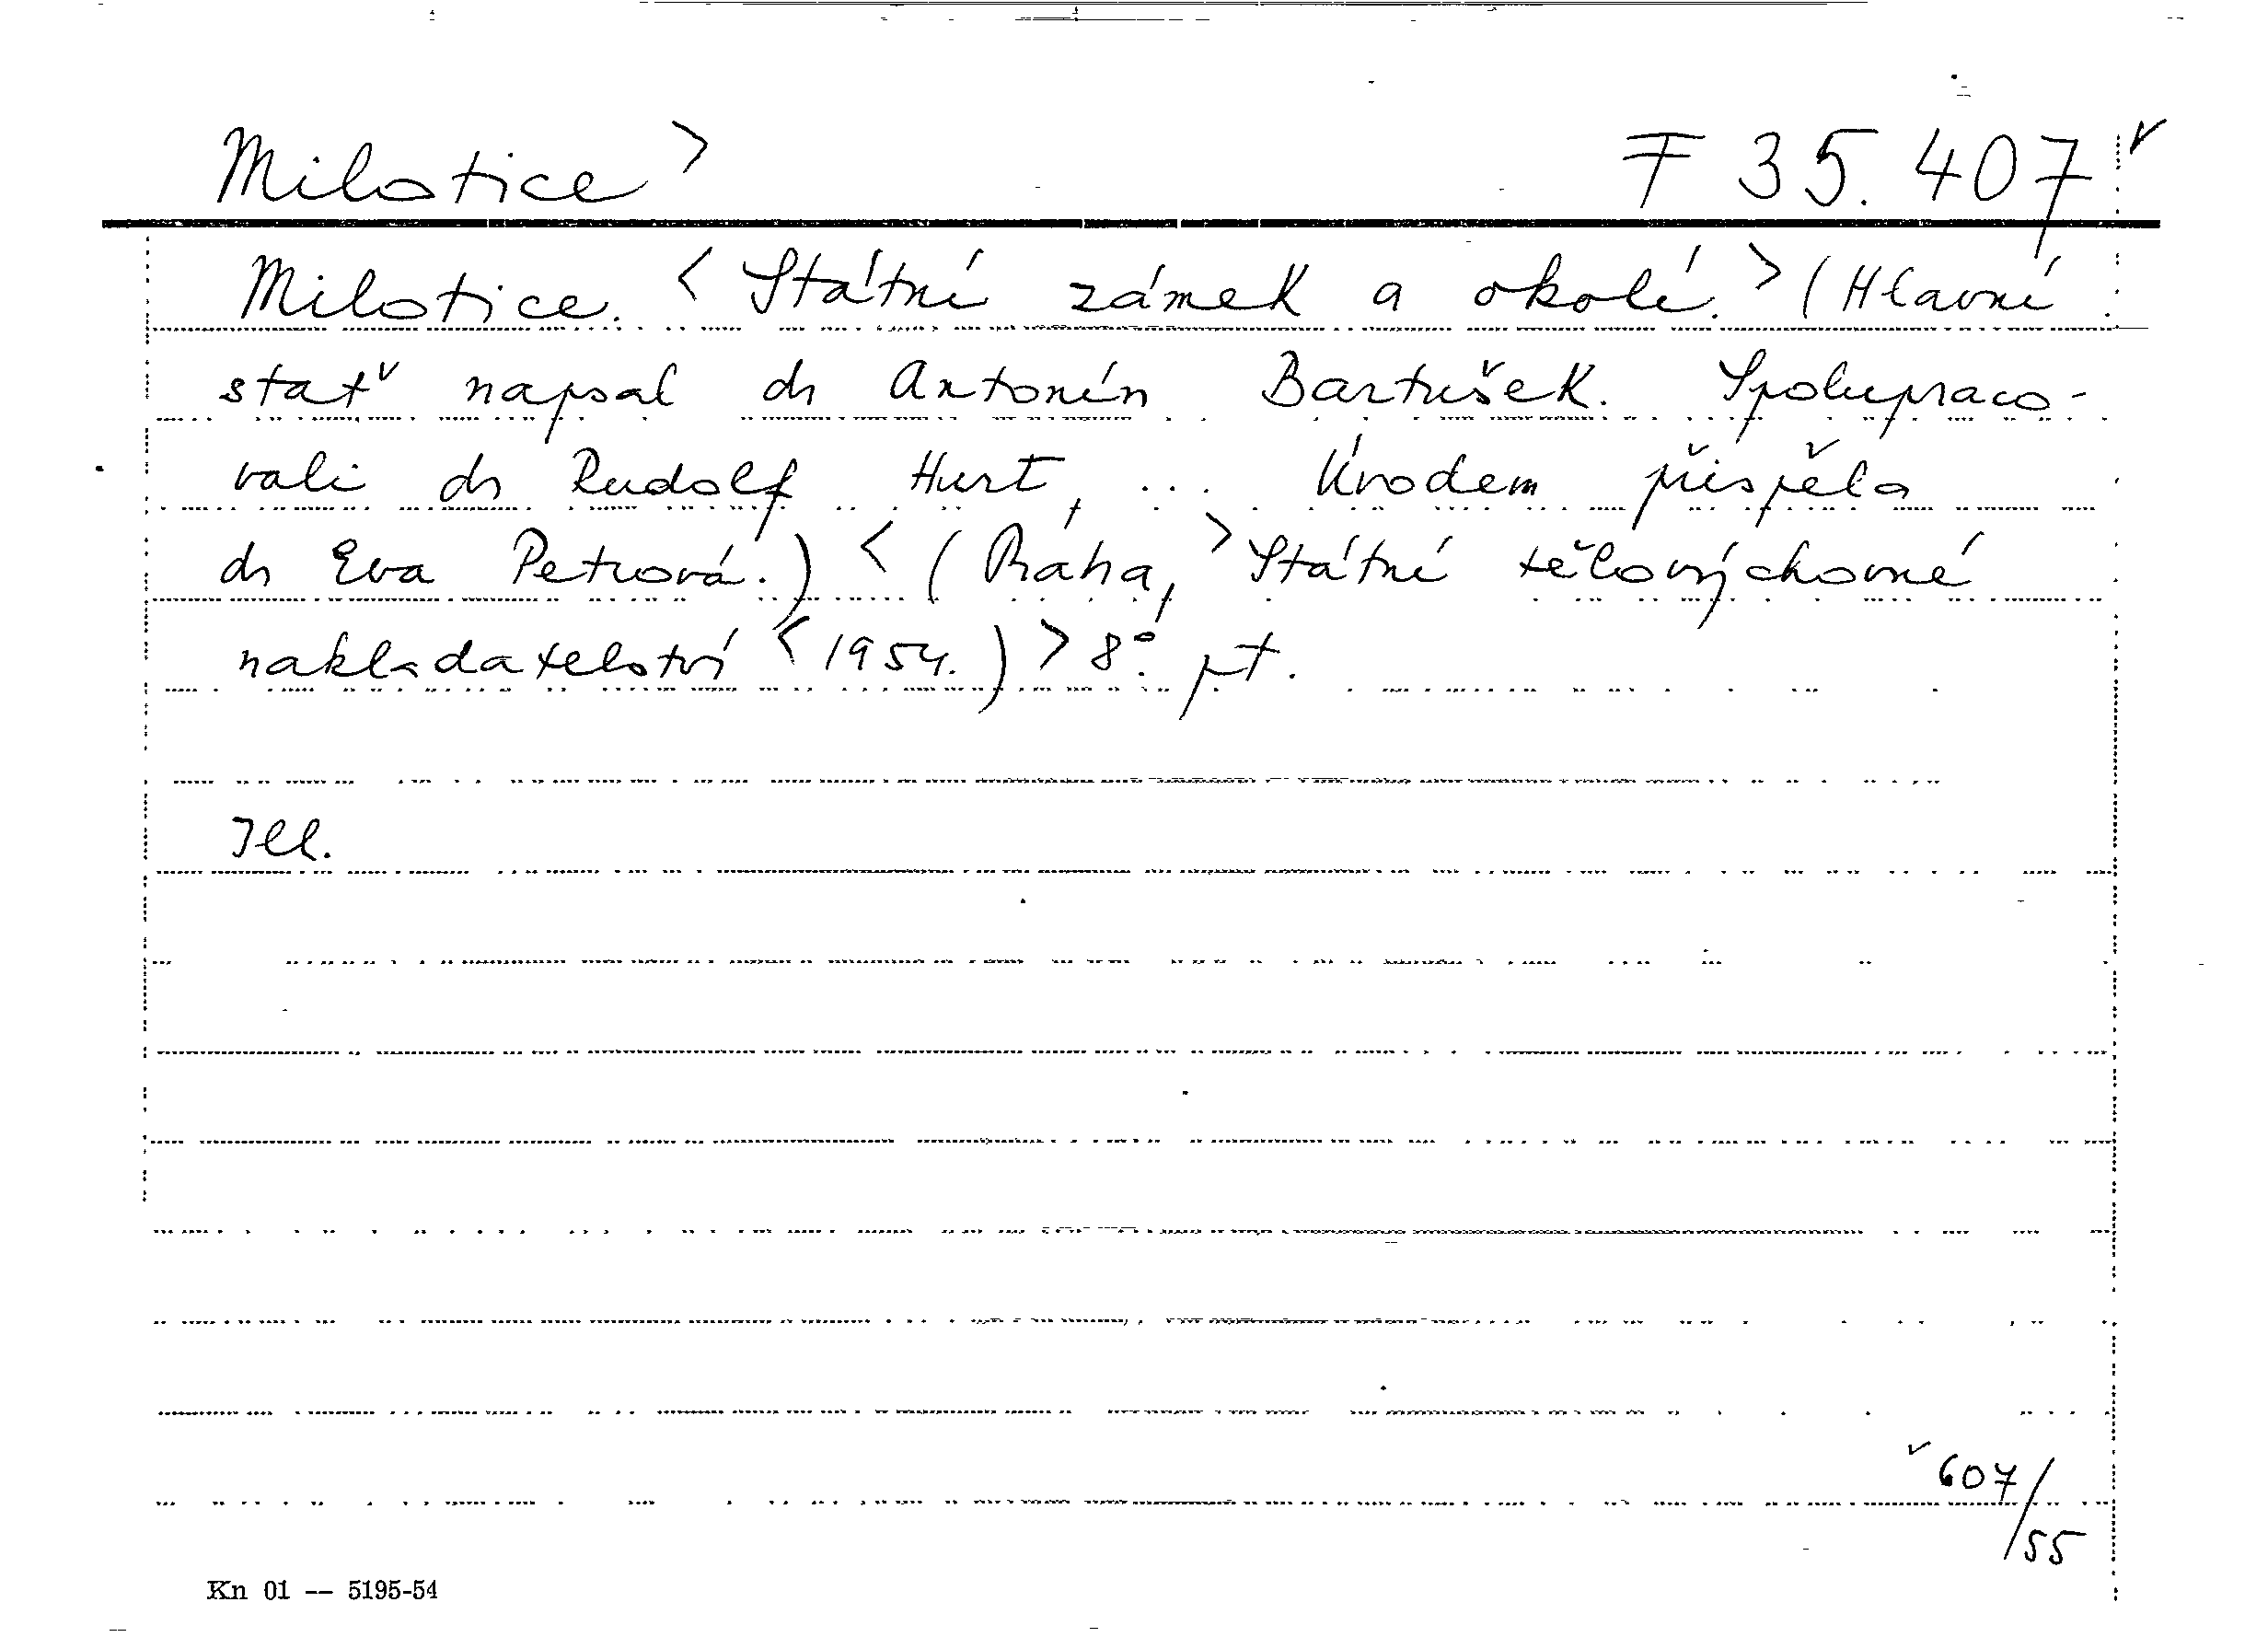 Milotice > F 35.407
Milotice. < Státní zámek a okolí. > (Hlavní
stať napsal dr Antonín Bartušek. Spolupraco-
vali dr Rudolf Hurt, ... Úvodem přispěla
dr Eva Petrová.) < (Praha, > Státní tělovýchovné
nakladatelství < 1954.) > 8°. pt.
Ill.
607/
55
Kn 01 — 5195-54